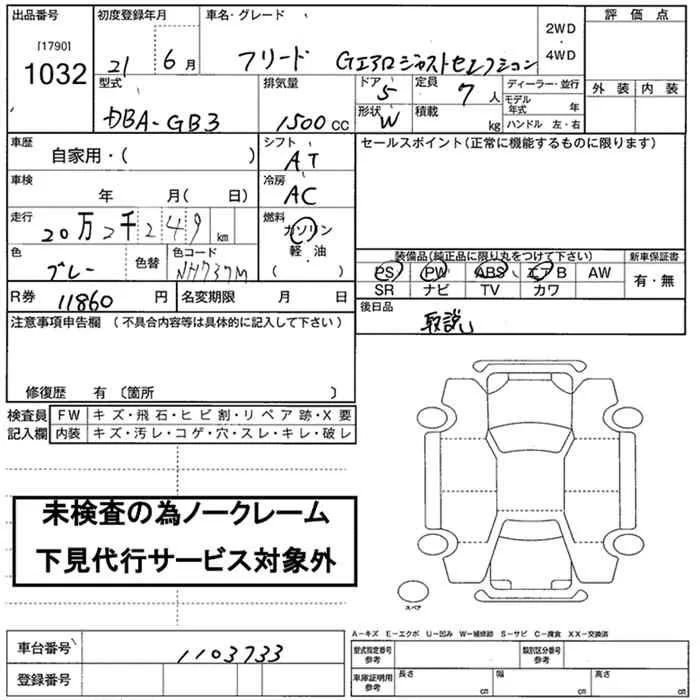 出品番号 初度登録年月 車名・グレード 2WD ・ 4WD 評価点
[1790]
1032 21 6月 フリード Gエアロ ジャストセレクション
型式 排気量 ドア 5 定員 7人 ディーラー・並行 外装 内装
DBA-GB3 1500CC 形状 W 積載 kg モデル年式 年
ハンドル 左・右
車歴 シフト セールスポイント(正常に機能するものに限ります)
自家用・( ) AT
車検 冷房
年 月( 日) AC
走行 燃料
20万2千249km ガソリン
軽・油
色 色替 色コード 装備品(純正品に限り丸をつけて下さい) 新車保証書
グレー NH737M ( ) PS PW ABS エアB AW 有・無
SR ナビ TV カワ
R券 11860円 名変期限 月 日 後日品
取説
注意事項申告欄 (不具合内容等は具体的に記入して下さい)
修復歴 有 〔箇所 〕
検査員 FW キズ・飛石・ヒビ割・リペア跡・X要
記入欄 内装 キズ・汚レ・コゲ・穴・スレ・キレ・破レ
未検査の為ノークレーム
下見代行サービス対象外
スペア
A-キズ E-エクボ U-凹み W-補修跡 S-サビ C-腐食 XX-交換済
車台番号 1103733 型式指定番号 参考 類別区分番号 参考
登録番号 車庫証明用 参考 長さ cm 幅 cm 高さ cm